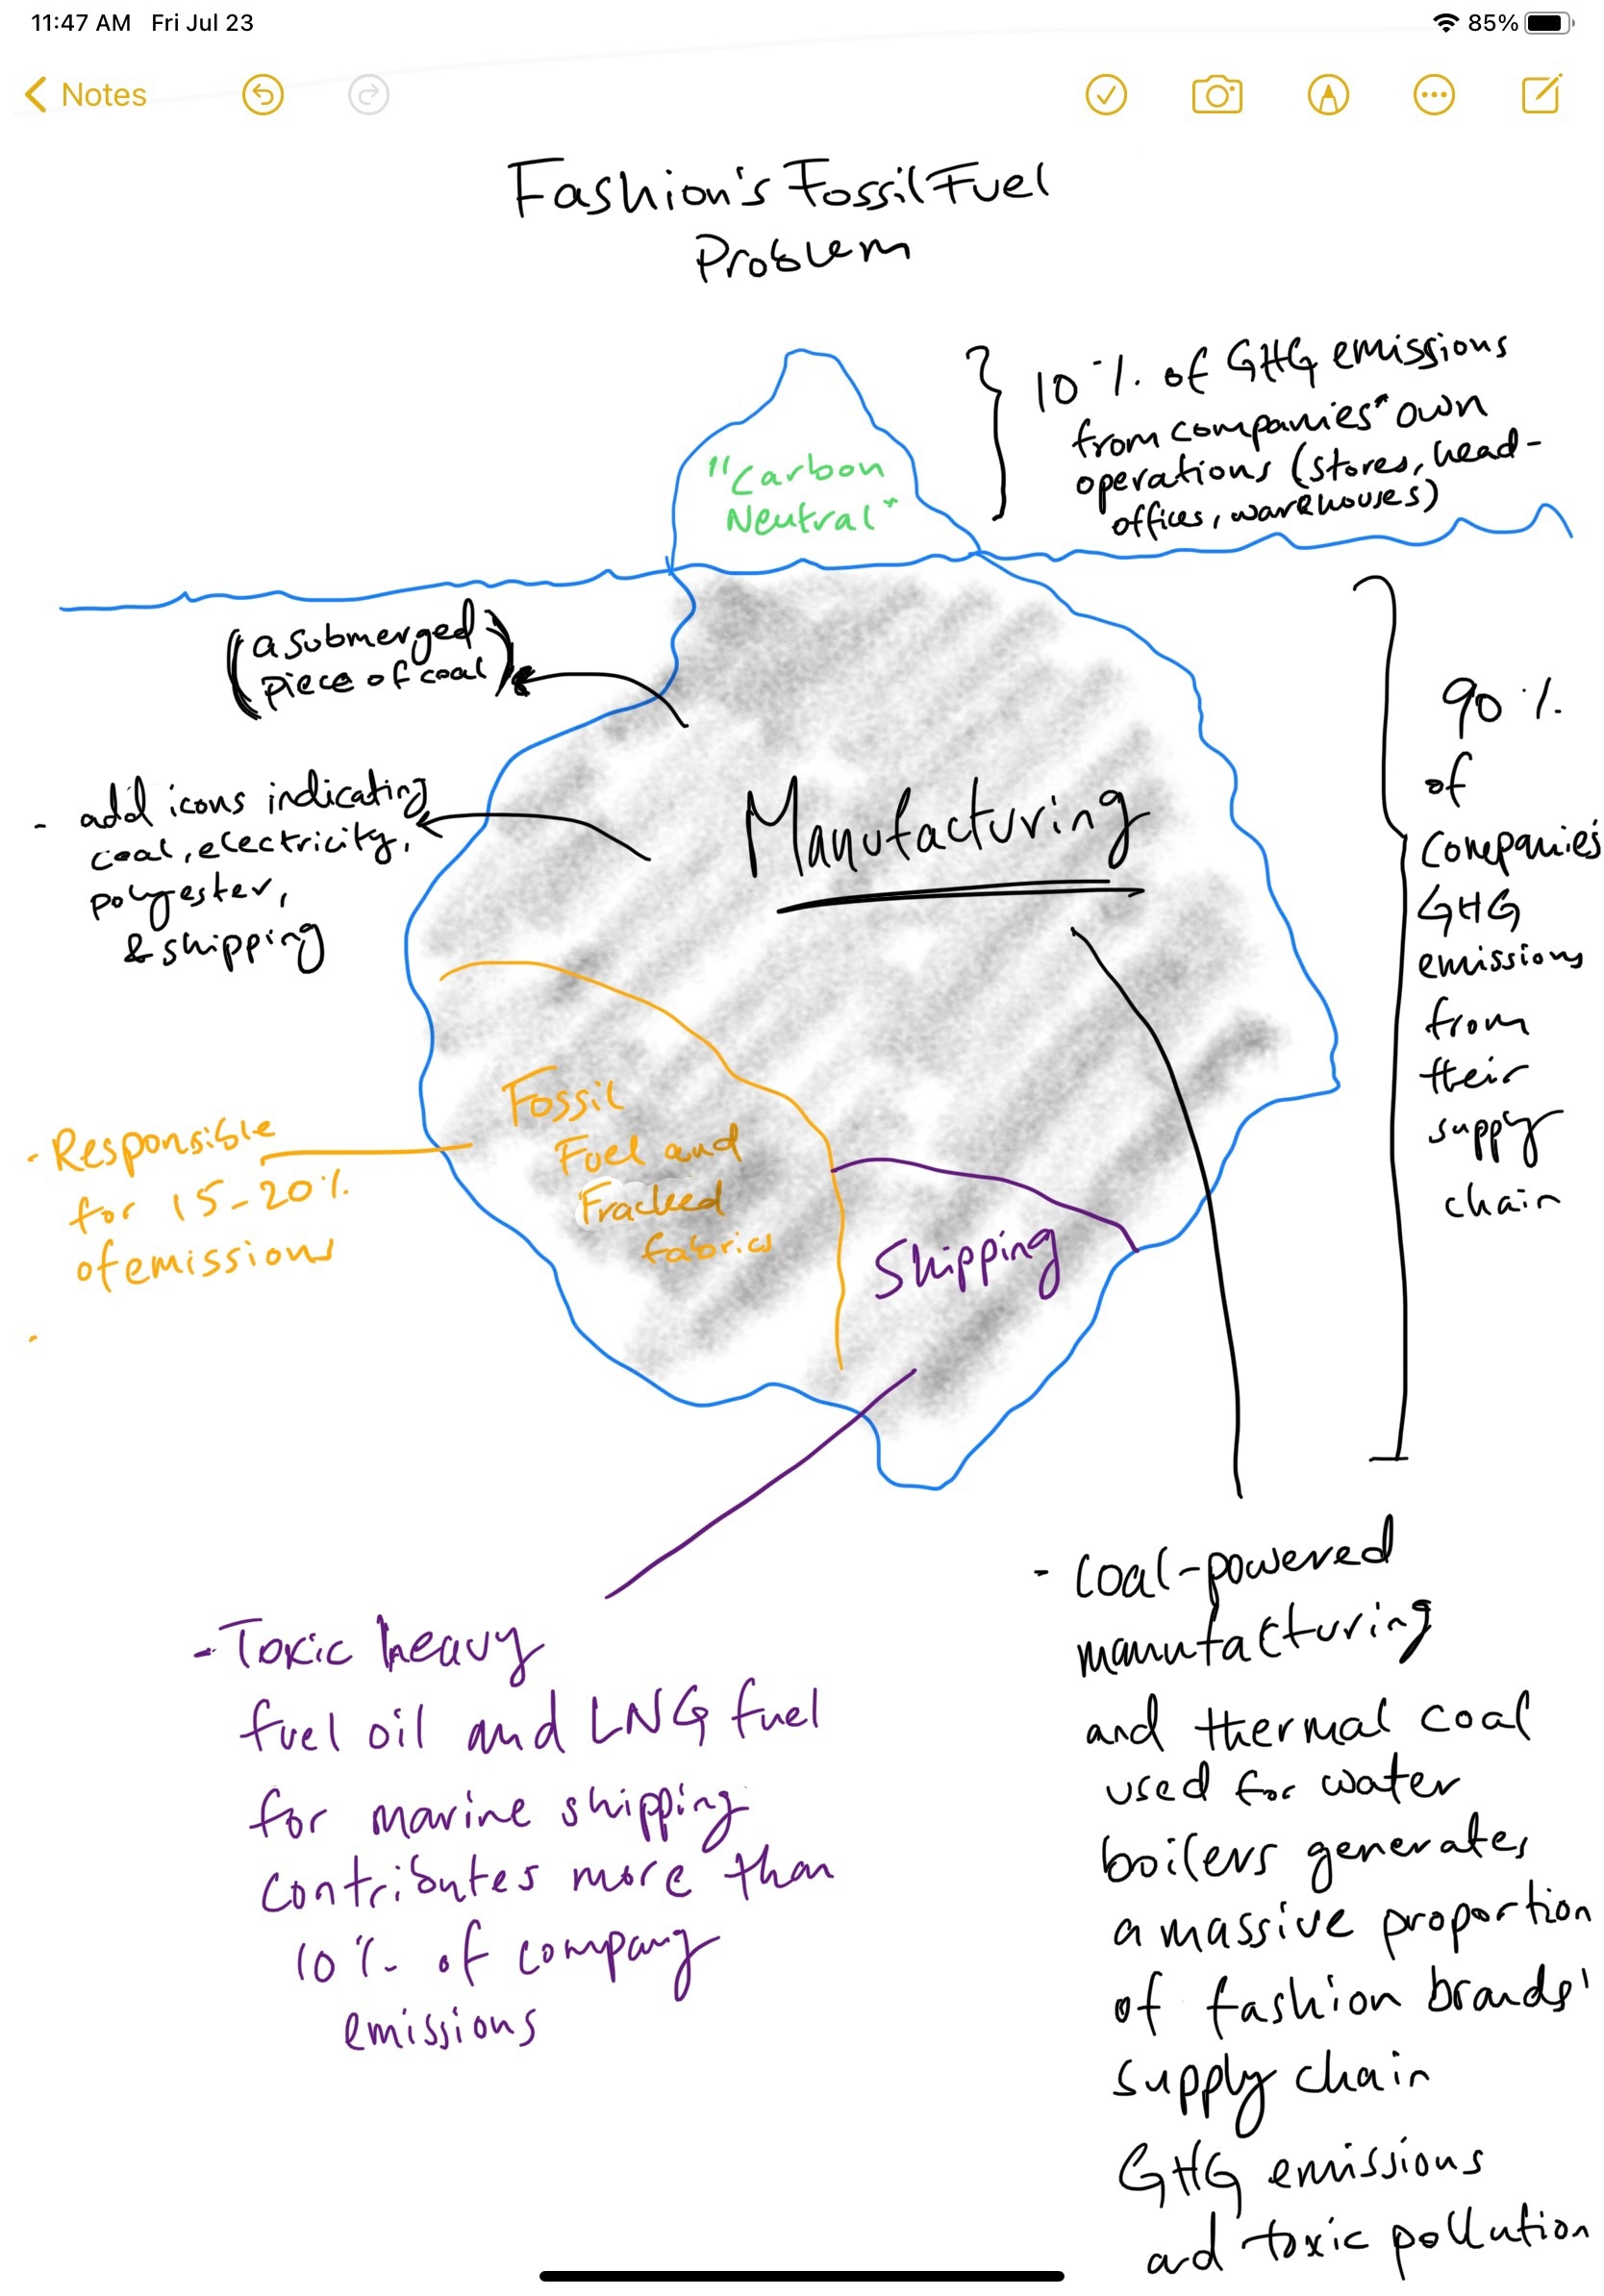 11:47 AM Fri Jul 23
85%
Notes
Fashion's Fossil Fuel
Problem
10% of GHG emissions
from companies' own
operations (stores, head-
offices, warehouses)
"Carbon
Neutral"
(a submerged
piece of coal)
90%
of
companies
GHG
emissions
from
their
supply
chain
Manufacturing
- add icons indicating
coal, electricity,
polyester,
& shipping
Fossil
Fuel and
Fracked
fabrics
- Responsible
for 15-20%
of emissions
-
Shipping
- Toxic heavy
fuel oil and LNG fuel
for marine shipping
contributes more than
10% of company
emissions
- coal-powered
manufacturing
and thermal coal
used for water
boilers generates
a massive proportion
of fashion brands'
supply chain
GHG emissions
and toxic pollution